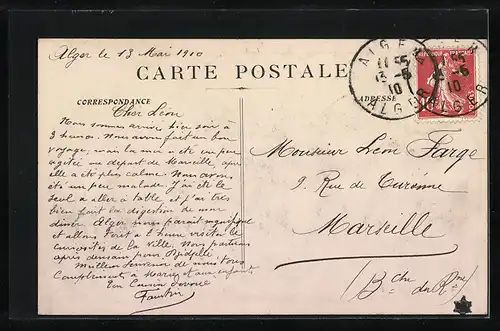 Alger le 13 Mai 1910
CARTE POSTALE
CORRESPONDANCE
ADRESSE
Cher Léon
Nous sommes arrivés hier soir à
3 heures. Nous avons fait un bon
voyage, mais la mer a été un peu
agitée au départ de Marseille, après
elle a été plus calme. Nous avons
été un peu malade. J'ai été le
seul à aller à table et j'ai très
bien fait la digestion de mon
diner. Alger nous parait magnifique
et allons tout à l'heure visiter les
curiosités de la ville. Nous partons
après demain pour Djidjelli
Meilleur souvenir de nous tous
Compliments à et aux enfants
Ton Cousin dévoué
Monsieur Léon Farge
9. Rue de Turenne
Marseille
(Bches du Rhône)
ALGER
13-5
10
ALGER
ALGER
13-5
10
ALGER